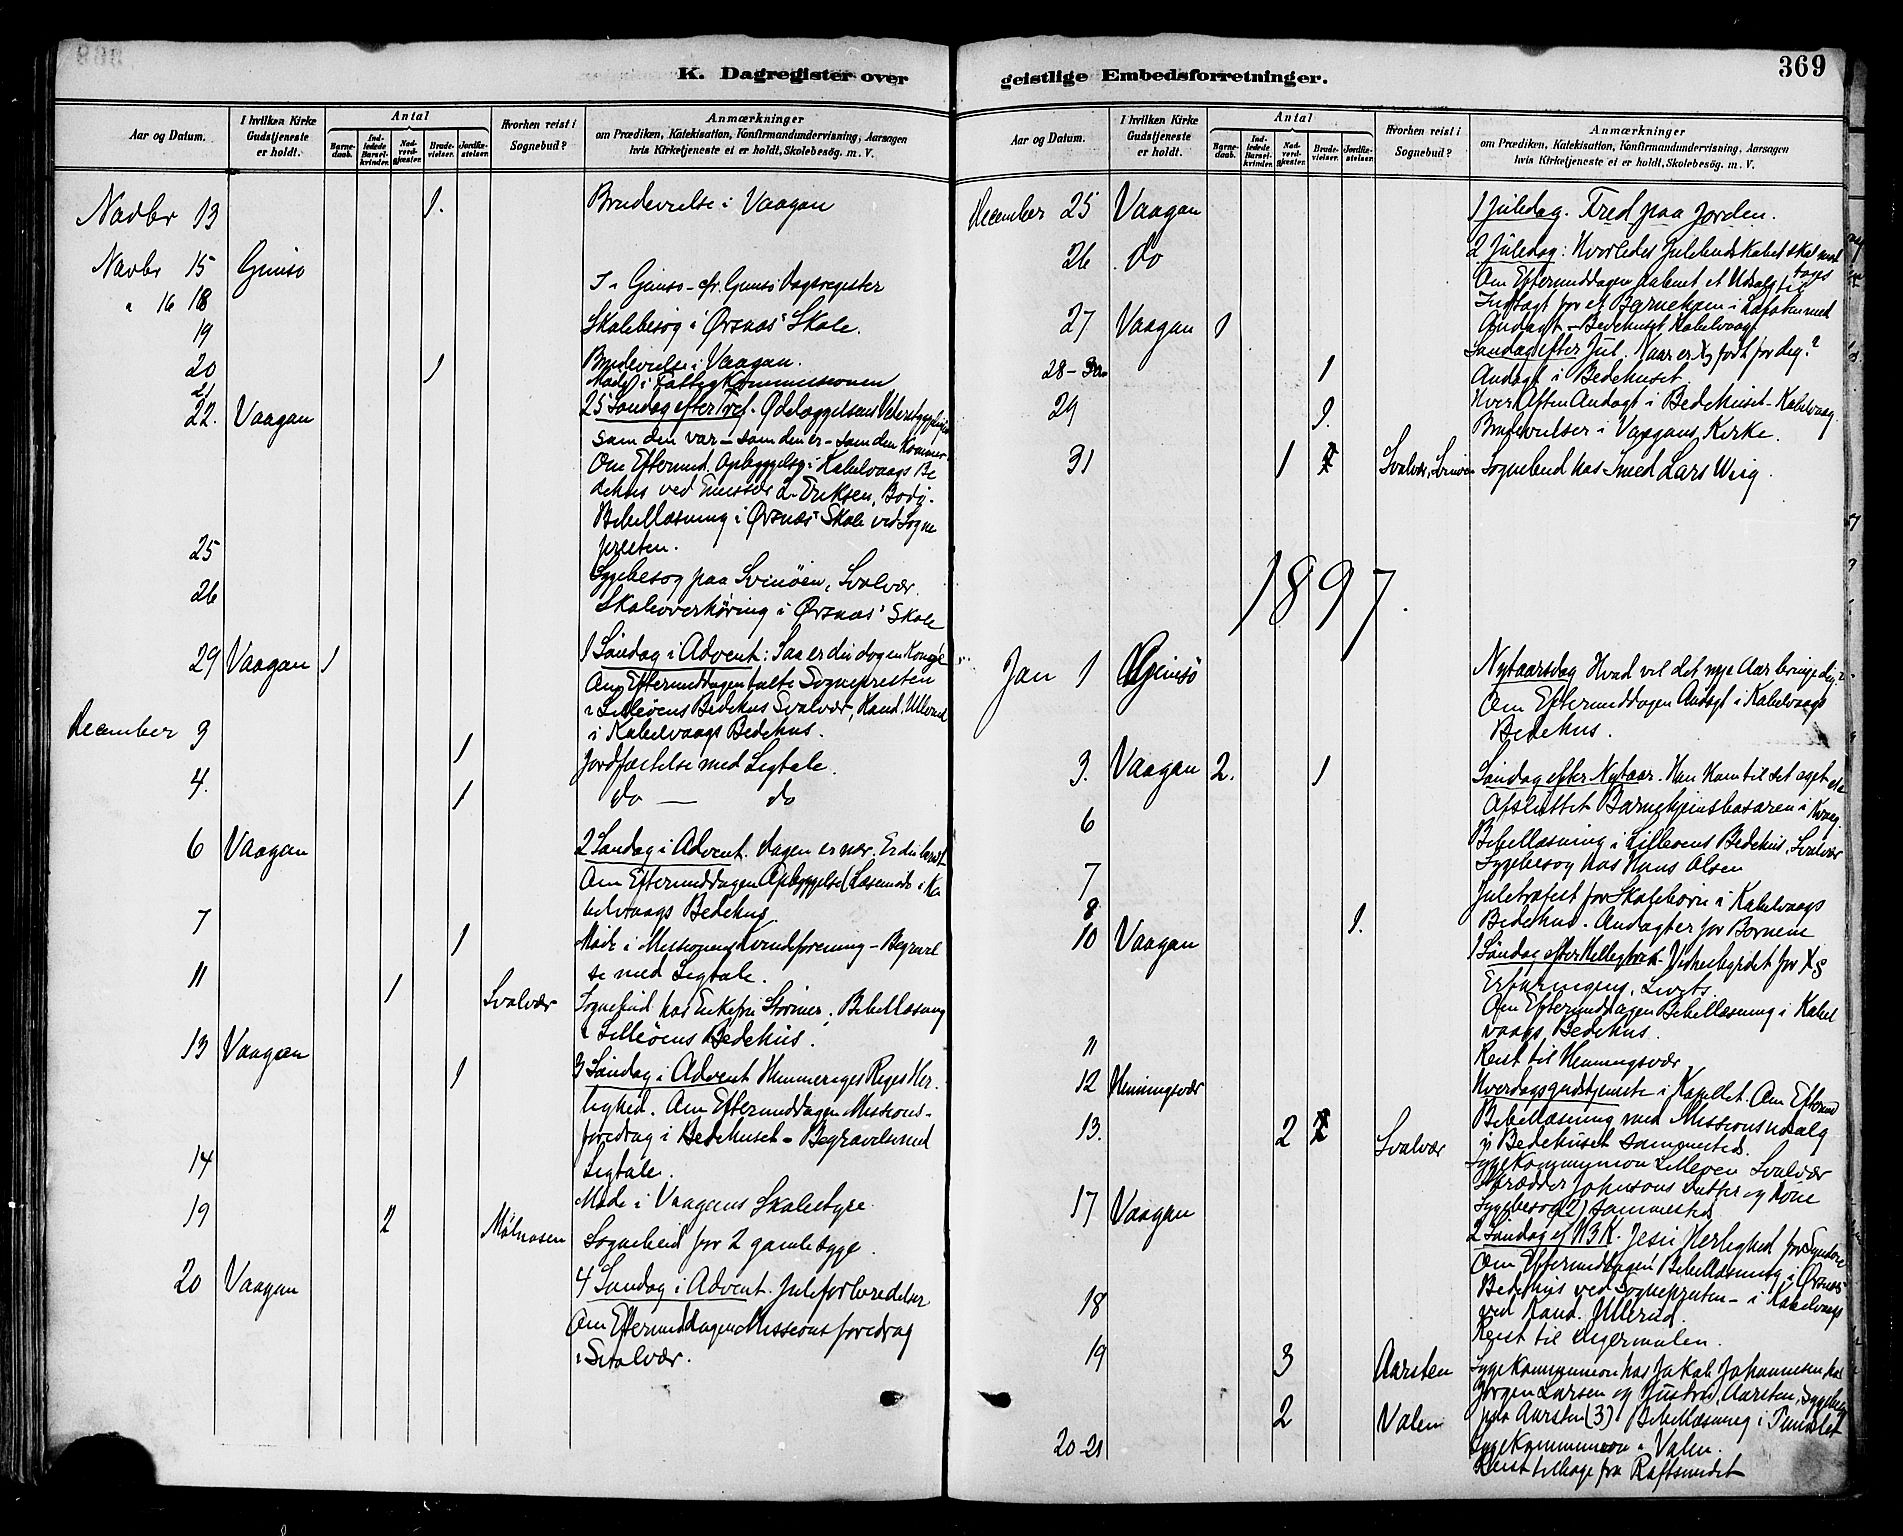 369
K. Dagregister over
Aar og Datum.
I hvilken Kirke Gudstjeneste er holdt.
Antal
Barnedaab.
Indledede Barselkvinder.
Nadverdgjæster.
Brudevielser.
Jordfæstelser.
Hvorhen reist i Sognebud?
Anmærkninger
om Prædiken, Katekisation, Konfirmandundervisning, Aarsagen
hvis Kirketjeneste ei er holdt, Skolebesög. m. V.
Novbr 13 1. Brudevielse i Vaagan
Novbr 15 Gimsö
" 16 18 I Gimsö - cfr. Gimsö Dagsregister
19 Skolebesög i Ørsnæs Skole.
20 1 Brudevielse i Vaagan.
21 Möde i Fattigkommissionen
22. Vaagan 25 Söndag efter Tref. Ødelæggelsens Vederstyggelighed
som den var - som den er - som den kommer
Om Eftermd. Opbyggelse i Kabelvaags Be
dehus ved Emissær Eriksen, Bodö.
Bibellæsning i Ørsnæs Skole ved Sogne
presten.
25 Sygebesög paa Svinöen, Svolvær.
26 Skoleoverhöring i Ørsnæs' Skole
29 Vaagan 1 1 Söndag i Advent: Saa er du dog en Konge
Om Eftermiddagen talte Sognepresten
i Lilleöens Bedehus Svolvær, Kand. Ullerud
i Kabelvaags Bedehus.
December 3 1 Jordfæstelse med Ligtale.
4. 1 do — do
6 Vaagan 2 Söndag i Advent. Dagen er nær. Er du beredt
Om Eftermiddagen Opbyggelse (Læsemöde i Ka
belvaags Bedehus
7 1 Möde i Missionens Kvindeforening - Begravel
se med Ligtale.
11 1 Svolvær Sognebud hos Enkefru Störmer. Bibellæsning
i Lilleöens Bedehus.
13 Vaagan 1 3 Söndag i Advent Himmeriges Riges Her-
lighed. Om Eftermiddagen Missions-
foredrag i Bedehuset - Begravelse med
Ligtale.
14 Möde i Vaagans Skolestyre.
19 2 Mölnosen Sognebud for 2 gamle syge.
20 Vaagan 4 Söndag i Advent. Juleforberedelser
Om Eftermiddagen Missionsforedrag
i Svolvær.
geistlige Embedsforretninger.
Aar og Datum.
I hvilken Kirke Gudstjeneste er holdt.
Antal
Barnedaab.
Indledede Barselkvinder.
Nadverdgjæster.
Brudevielser.
Jordfæstelser.
Hvorhen reist i Sognebud?
Anmærkninger
om Prædiken, Katekisation, Konfirmandundervisning, Aarsagen
hvis Kirketjeneste ei er holdt, Skolebesög. m. V.
December 25 Vaagan 1 Juledag. Fred paa Jorden.
26 do 2 Juledag: Hvorledes Julebudskabet skal mod
tages
Om Eftermiddagen aabnet et Udsalg til
Indtægt for et Börnehjem i Lofoten med
27 Vaagan 1 Andagt - Bedehuset Kabelvaag
Söndag efter Jul. Naar er X födt for dig?
28 - 30 1 Andagt i Bedehuset
29 2. Hver Aften Andagt i Bedehuset - Kabelvaag.
Brudevielser i Vaagans Kirke.
31 1 Svolvær, Svinöen Sognebud hos Smed Lars Wiig.
1897.
Jan 1 Gimsö Nytaarsdag Hvad vil det nye Aar bringe dig?
Om Eftermiddagen Andagt i Kabelvaags
Bedehus.
3. Vaagan 2. 1 Söndag efter Nytaar. Han kom til det eget
Afsluttet Barnehjemsbasaren i Kvaag.
6 Bibellæsning i Lilleöens Bedehus, Svolvær
Sygebesög hos Hans Olsen
7 Juletræfest for Skolebörn i Kabelvaags
8 1. Bedehus. Andagter for Börnene
10 Vaagan 1 Söndag efter Helligtrek. Vidnesbyrdet for X
Erfaringens, Livets
Om Eftermiddagen Bibellæsning i Kabel
vaags Bedehus.
11 Reist til Henningsvær
12 Henningsvær Hverdagsgudstjeneste i Kapellet. Om Efterm
Bibellæsning med Missionsudvalg
13. 2 Svolvær i Bedehuset sammesteds.
Sygekommunion Lilleöen Svolvær
Skrædder Johnsons Datter og Kone
Sygebesög (2) sammesteds
17 Vaagan 2 Söndag ef H3K. Jesu Herlighed for Syndere
Om Eftermiddagen Bibellæsning i Ørsnæs
Bedehus ved Sognepresten - i Kabelvaags
ved Kand. Ullerud.
18 Reist til Digermulen.
19 3 Aarsten Sygekommunion hos Jakob Johannesen, hos
Jörgen Larsen og Hustru, Aarsten, Sygebesög
2 Valen paa Aarsten (3) Bibellæsning i
Sygekommunion i Valen.
20-21 Reist tilbage fra Raftsundet